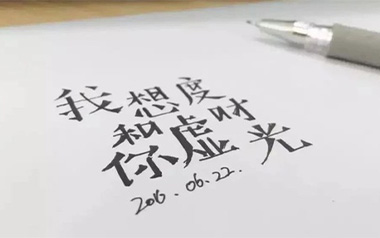 我想和你
虚度时光
2016.06.22.